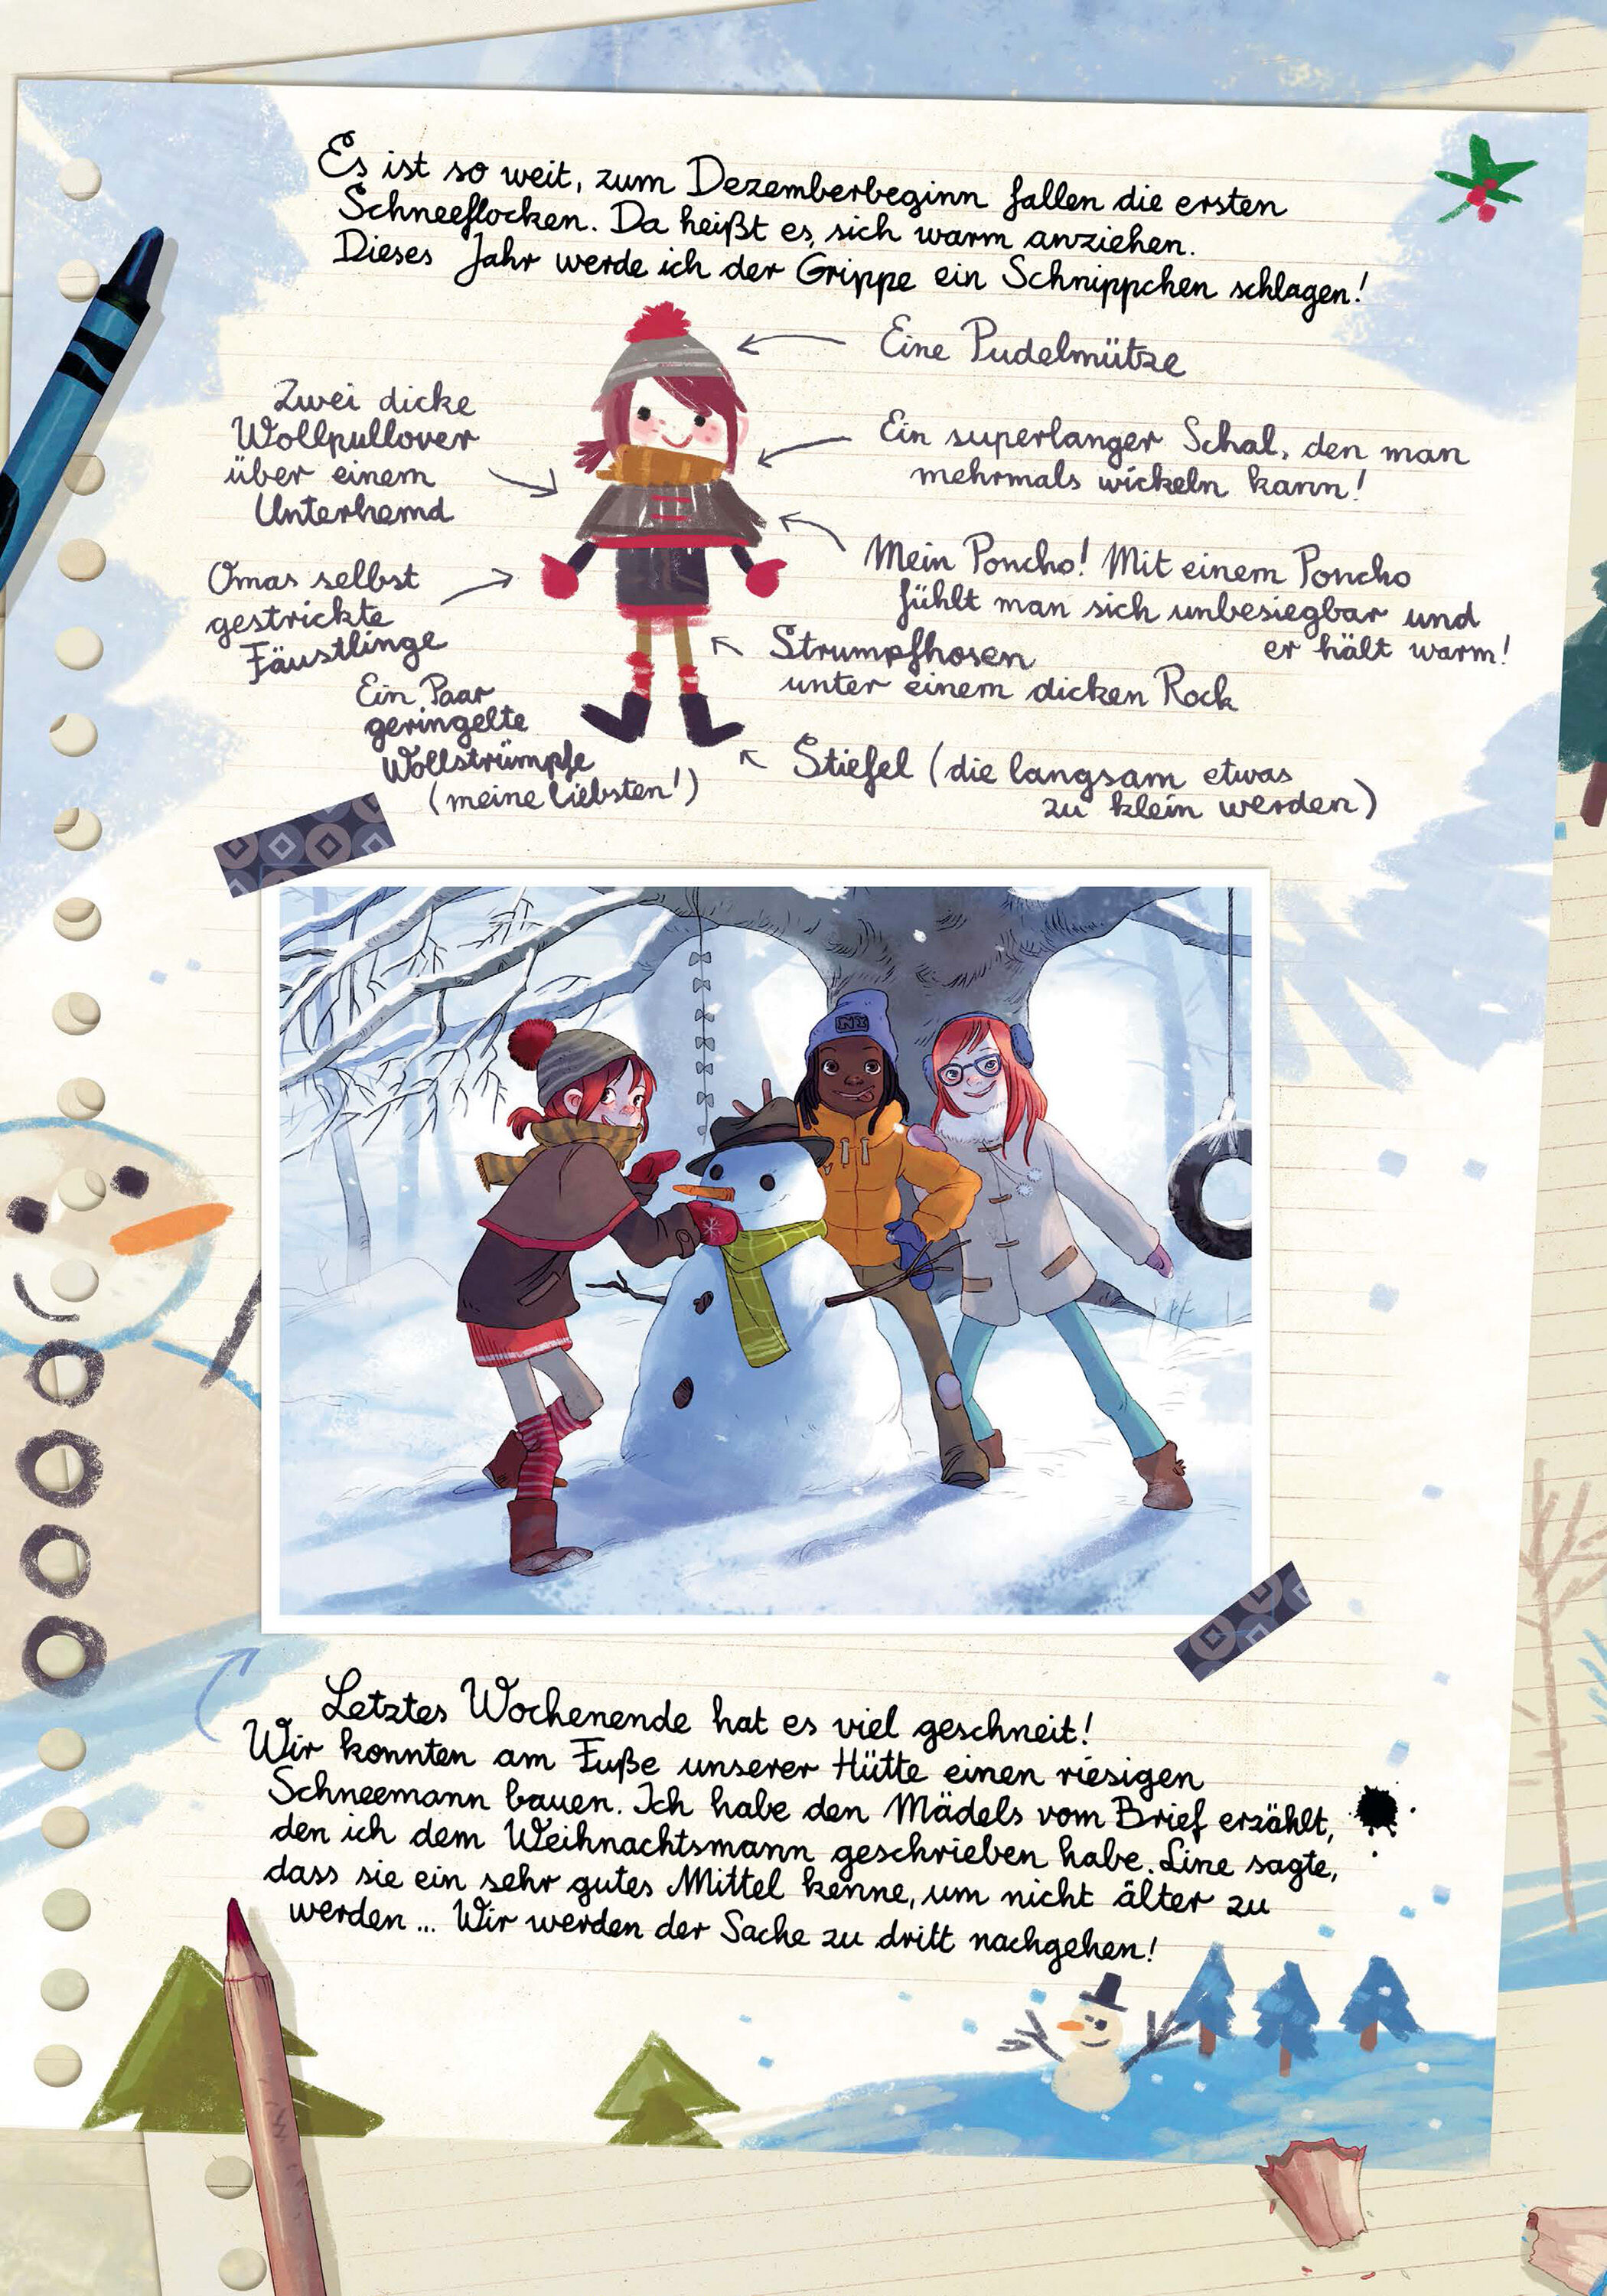 Es ist so weit, zum Dezemberbeginn fallen die ersten
Schneeflocken. Da heißt es, sich warm anziehen.
Dieses Jahr werde ich der Grippe ein Schnippchen schlagen!
Eine Pudelmütze
Zwei dicke
Wollpullover
über einem
Unterhemd
Ein superlanger Schal, den man
mehrmals wickeln kann!
Omas selbst
gestrickte
Fäustlinge
Mein Poncho! Mit einem Poncho
fühlt man sich unbesiegbar und
er hält warm!
Strumpfhosen
unter einem dicken Rock
Ein Paar
geringelte
Wollstrümpfe
(meine liebsten!)
Stiefel (die langsam etwas
zu klein werden)
NY
Letztes Wochenende hat es viel geschneit!
Wir konnten am Fuße unserer Hütte einen riesigen
Schneemann bauen. Ich habe den Mädels vom Brief erzählt,
den ich dem Weihnachtsmann geschrieben habe. Line sagte,
dass sie ein sehr gutes Mittel kenne, um nicht älter zu
werden ... Wir werden der Sache zu dritt nachgehen!